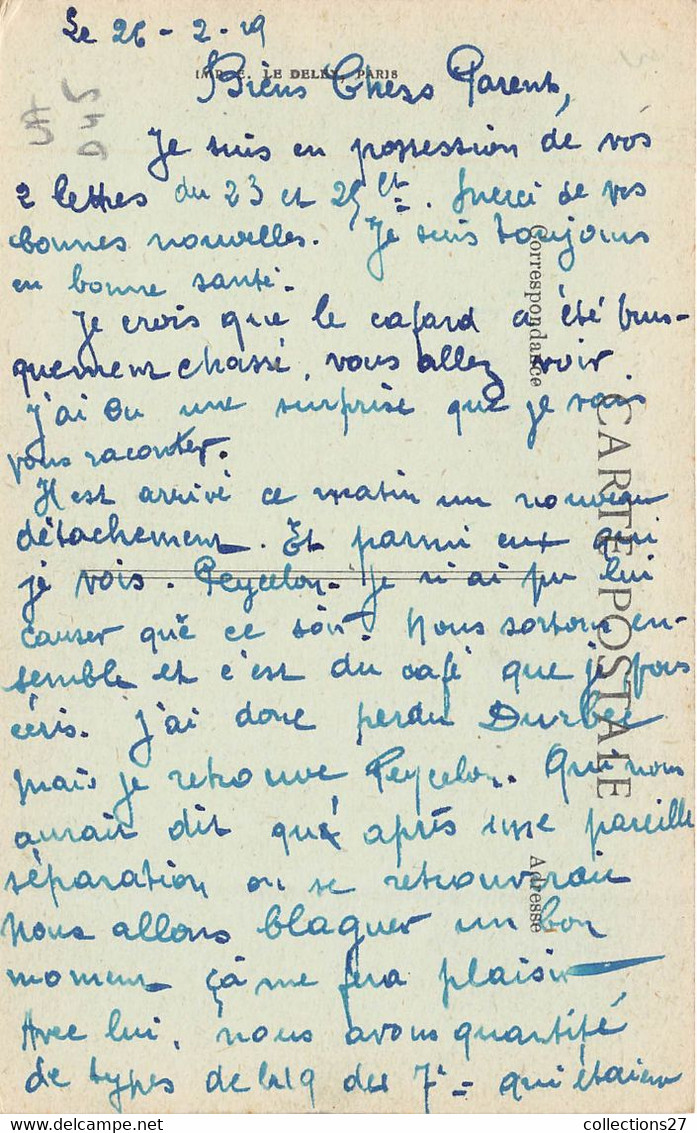 Le 26 - 2 - 19
IMP. E. LE DELEY, PARIS
Biens Chers Parents,
Je suis en possession de vos
2 lettres du 23 et 25 ct. Merci de vos
bonnes nouvelles. Je suis toujours
en bonne santé.
Je crois que le cafard a été brus-
quement chassé, vous allez voir.
J'ai eu une surprise que je vais
vous raconter.
Il est arrivé ce matin un nouveau
détachement. Et parmi eux qui
je vois. Peycelon. Je n'ai pu lui
causer que ce soir. Nous sortons en-
semble et c'est du café que je vous
écris. J'ai donc perdu Durbec
mais je retrouve Peycelon. Qui nous
aurait dit que après une pareille
séparation on se retrouvrait
Nous allons blaguer un bon
moment ça me fera plaisir
Avec lui, nous avons quantité
de types de la 19 du 7e qui étaient
Correspondance
CARTE POSTALE
Adresse
collections27